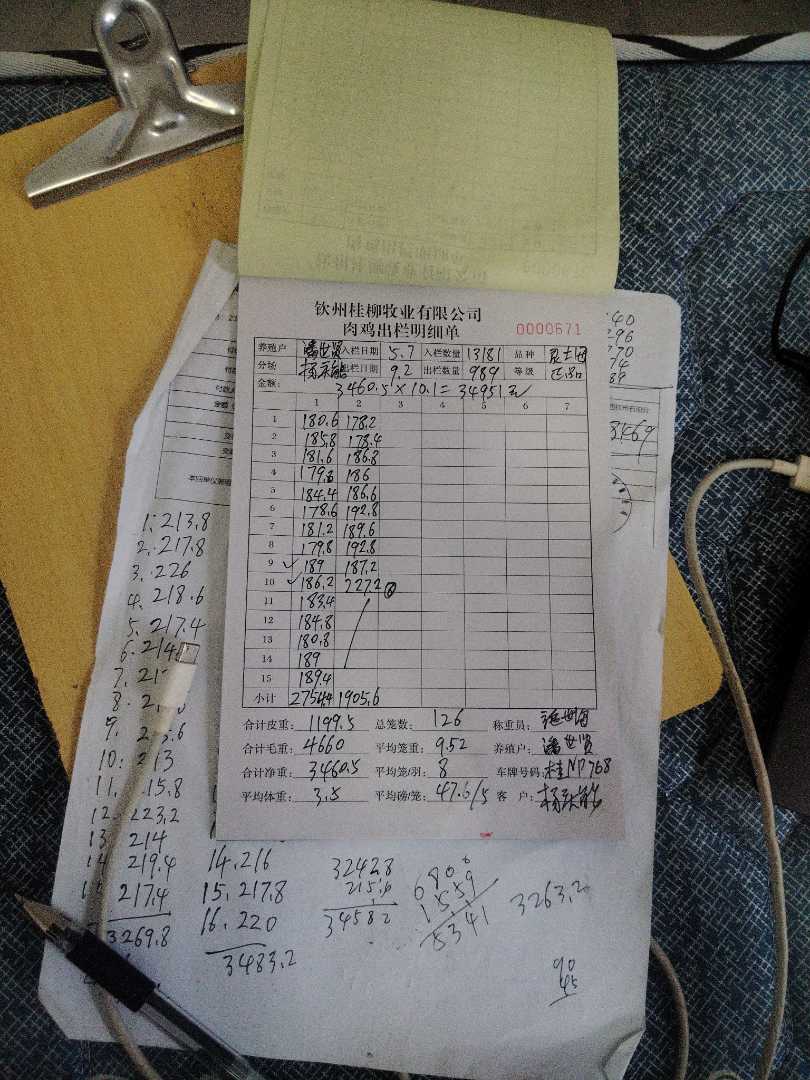 钦州桂柳牧业有限公司
肉鸡出栏明细单
0000671
养殖户 潘世贤 入栏日期 5.7 入栏数量 13181 品种
分场 出栏日期 9.2 出栏数量 989 等级 正品
金额: 3460.5 × 10.1 = 34951元
1 2 3 4 5 6 7
1 180.6 178.2
2 185.8 178.4
3 181.6 186.8
4 179.8 186
5 184.4 186.6
6 178.6 192.8
7 181.2 189.6
8 179.8 192.8
9 189 187.2
10 186.2 227.2 ⑥
11 183.4
12 184.8
13 180.8
14 189
15 189.4
小计 2754.4 1905.6
合计皮重: 1199.5 总笼数: 126 称重员:
合计毛重: 4660 平均笼重: 9.52 养殖户: 潘世贤
合计净重: 3460.5 平均笼/羽: 8 车牌号码: 桂NP768
平均体重: 3.5 平均磅/笼: 47.6/5 客 户:
1. 213.8
2. 217.8
3. 226
4. 218.6
5. 217.4
6. 214
7.
8.
9.
10. 213
11. 15.8
12. 223.2
13. 214
219.4
217.4
3269.8
14. 216
15. 217.8
16. 220
3483.2
3242.8
215.4
3458.2
6809
1559
5341
3263.2
90
45
3469